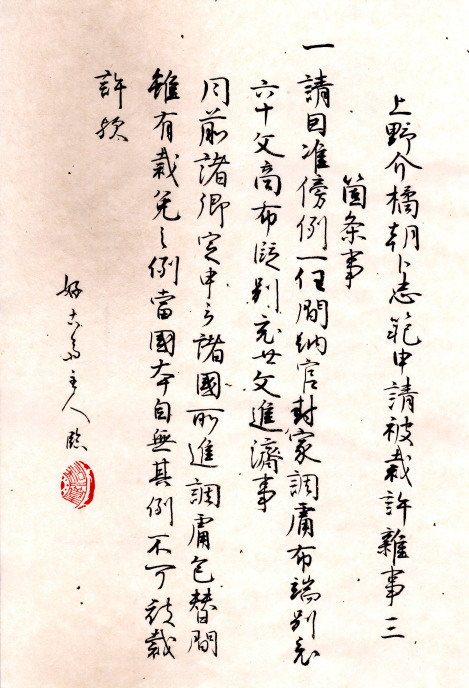 上野介橘朝臣忠範申請被裁許雜事三
箇条事
一請因准傍例一任間納官封家調庸布端別充
六十文商布段別充廿文進濟事
同前諸卿定申云諸國所進調庸色替間
雖有裁免之例當國本自無其例不可被裁
許歟
好古斎主人臨